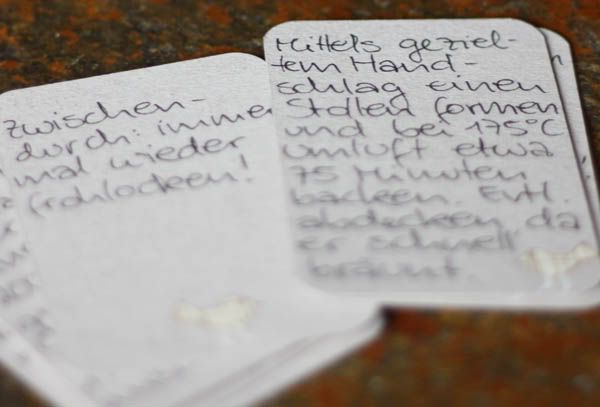 zwischen-
durch: immer
mal wieder
frohlocken!
Mittels geziel-
tem Hand-
schlag einen
Stollen formen
und bei 175°C
Umluft etwa
75 Minuten
backen. Evtl.
abdecken, da
er schnell
bräunt.